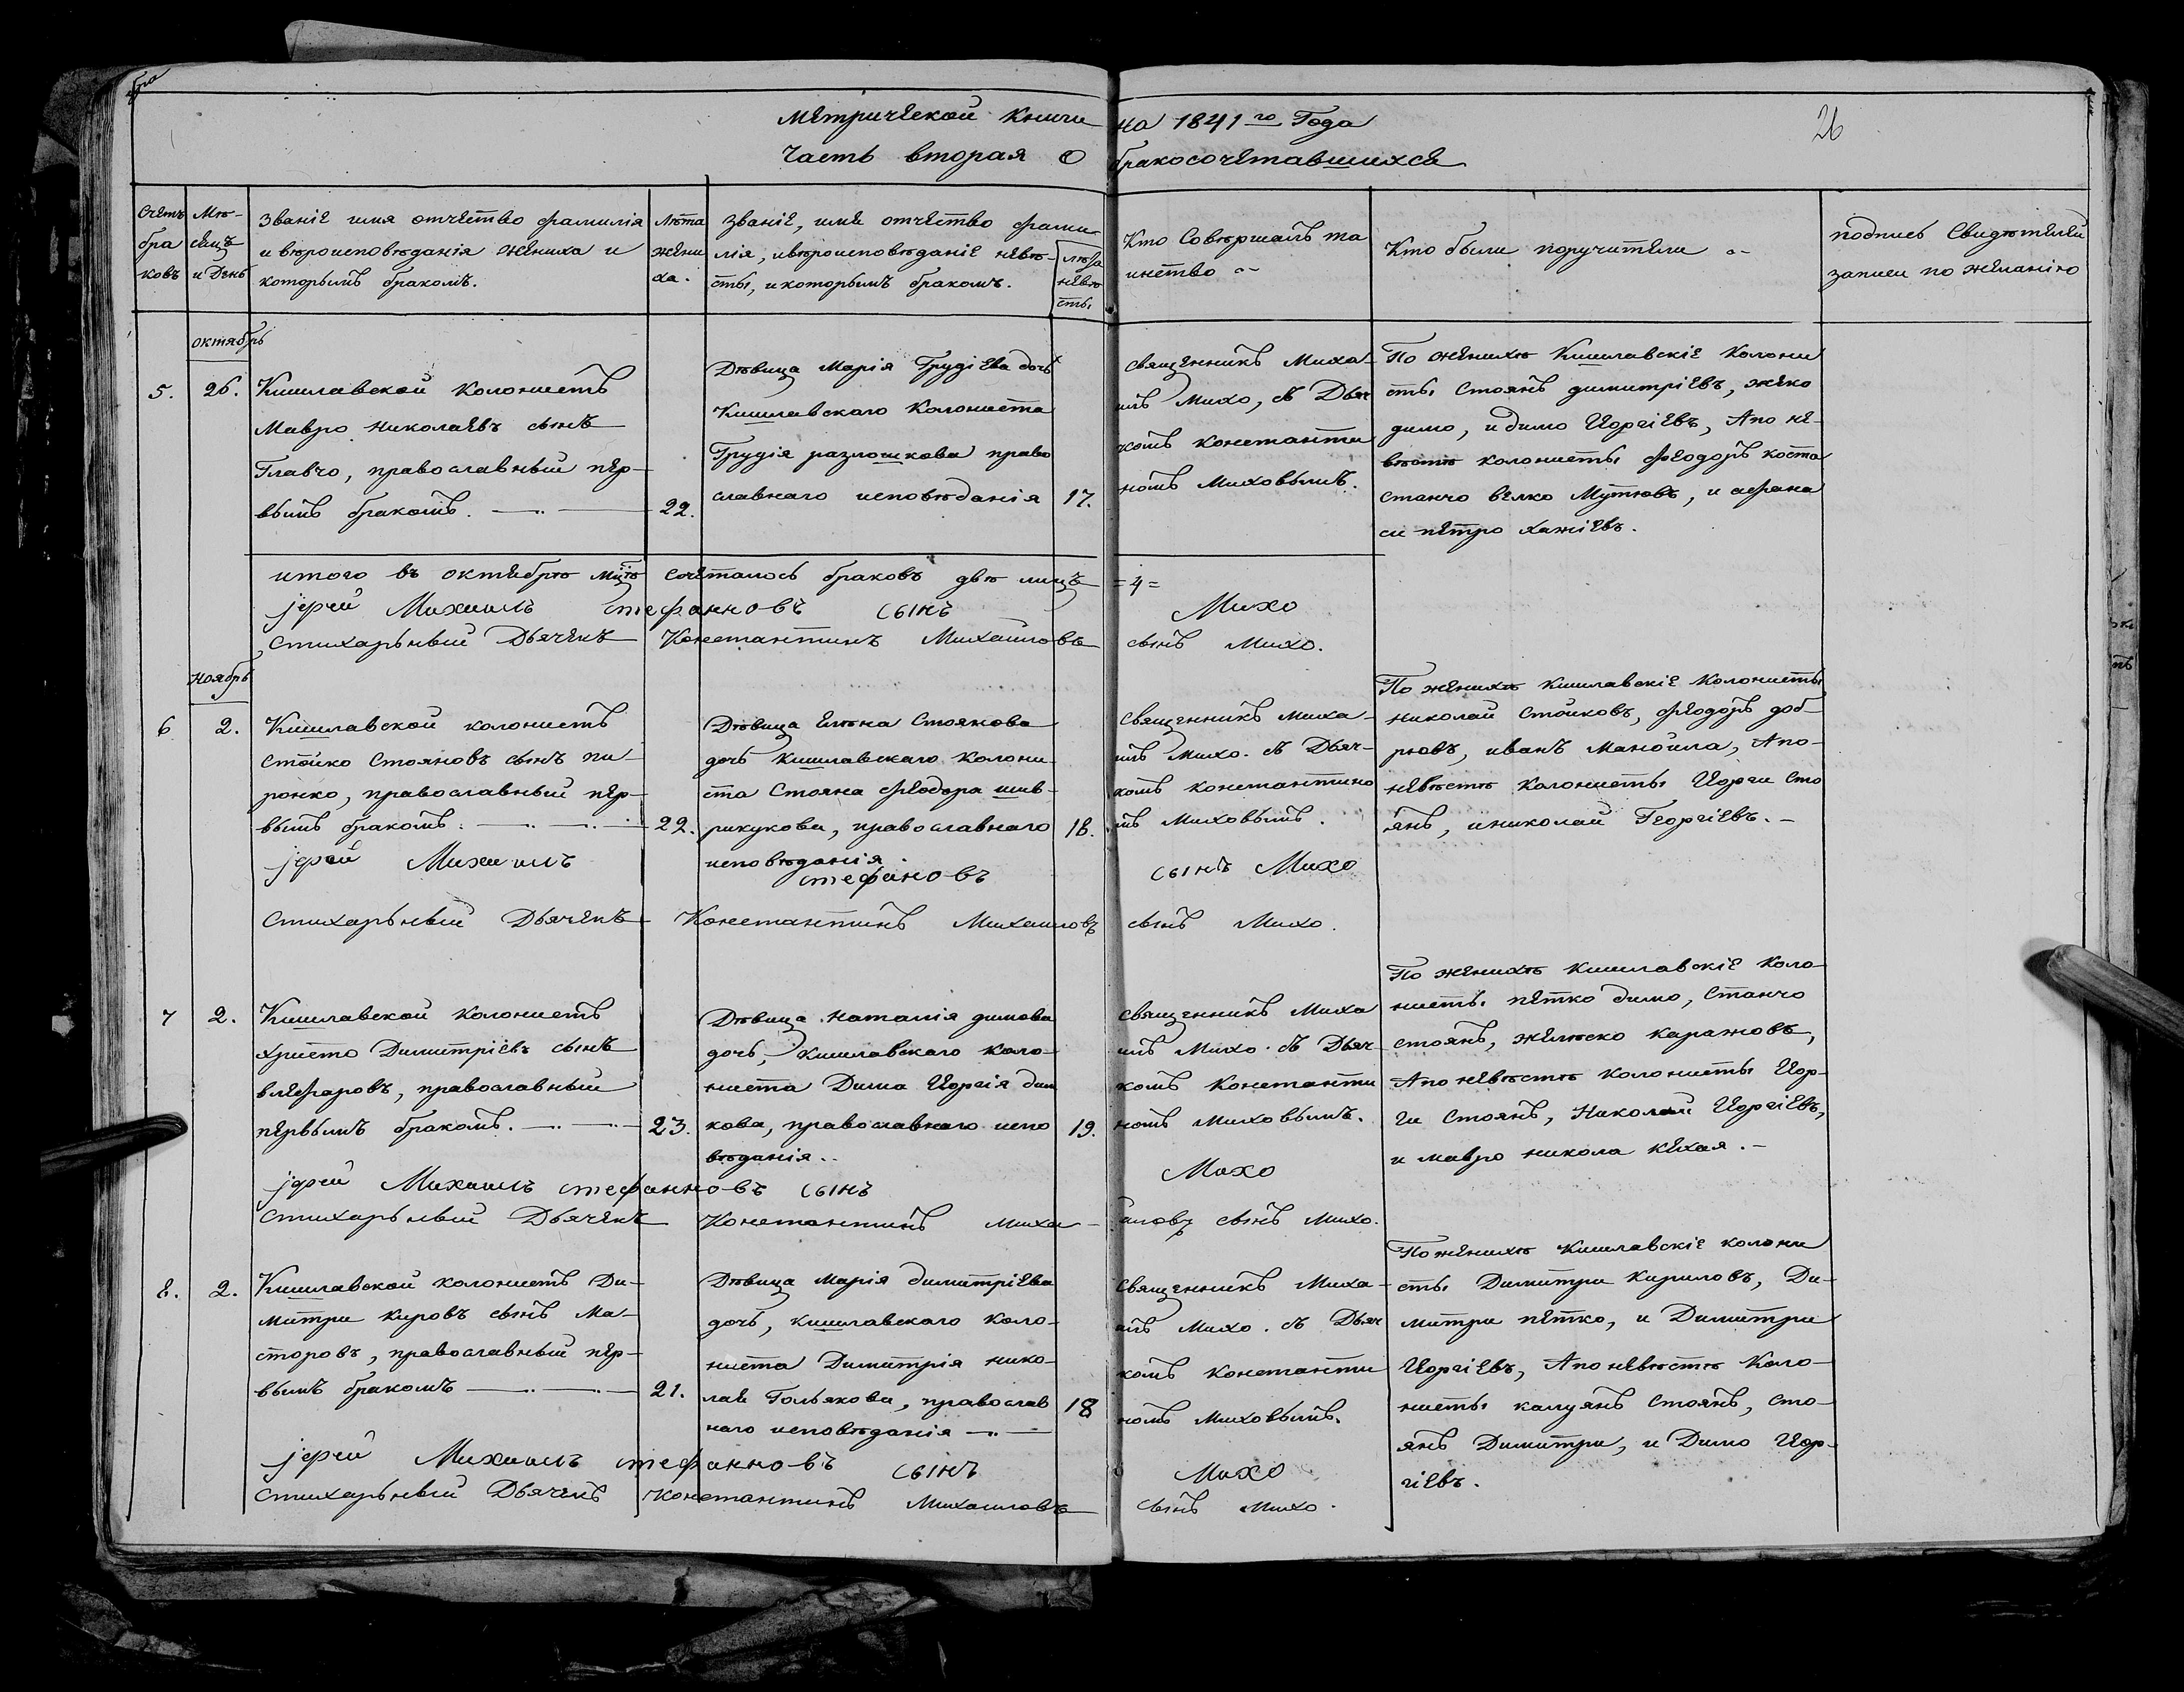 Метрической книги на 1841го Года
26
Часть вторая О бракосочетавшихся
Счетъ браковъ
Мѣсяцъ и День
Званіе имя отчество фамилія
и вѣроисповѣданія жениха и
которымъ бракомъ.
лѣта
жени
ха.
Званіе, имя отчество фами
лія, ивѣроисповѣданіе невѣ-
сты, и которымъ бракомъ.
лѣта
невѣ
сты
Кто Совершалъ та
инство
Кто были поручители
подпись Свидѣтелей
записи по желанію
октябрь
5.
26.
Кишлавской колонистъ
Мавро Николаевъ сынъ
Главчо, православный пер-
вымъ бракомъ.
22.
Дѣвица Марія Грудіева дочь
Кишлавскаго Колониста
Грудія разлошкова право
славнаго исповѣданія
17.
священникъ Миха
илъ Михо, съ Дьяч
комъ константи
номъ Миховымъ.
По женихѣ Кишлавскіе Колони
сты Стоянъ димитріевъ, жеко
димо, и димо Иоргіевъ, А по не-
вѣстѣ колонисты Феодоръ коста
станчо велко Мутювъ, и афана
си петро хажіевъ.
итого въ октябрѣ мцѣ сочеталось браковъ двѣ лицъ =4=
іерей Михаилъ стефановъ сынъ Михо
стихарьный Дьячекъ Константинъ Михаиловъ сынъ Михо.
ноябрь
6
2.
Кишлавской колонистъ
стойко Стояновъ сынъ пи-
ронко, православный пер-
вымъ бракомъ.
22.
Дѣвица Елѣна Стоянова
дочь Кишлавскаго колони-
ста Стояна Феодора шив-
рикукова, православнаго
исповѣданія.
18.
Священникъ миха-
илъ михо. съ Дьяч-
комъ константино
мъ Миховымъ.
По женихѣ кишлавскіе Колонисты
николай стойковъ, Феодоръ доб-
ревъ, иванъ манойла, А по-
невѣстѣ колонисты Иорги сто
янъ, и николай Георгіевъ.-
іерей Михаилъ стефановъ сынъ Михо
стихарьный Дьячекъ Константинъ Михаиловъ сынъ Михо.
7
2.
Кишлавской колонистъ
христо Димитріевъ сынъ
влефаровъ, православный
первымъ бракомъ.
23.
Дѣвица наталія димова
дочь, кишлавскаго коло-
ниста Димо Иоргія дим
кова, православнаго испо
вѣданія.
19.
священникъ Миха
илъ Михо. съ Дьяч-
комъ Константи
номъ Миховымъ.
По женихѣ кишлавскіе коло-
нисты петко димо, станчо
стоянъ, желѣско каражовъ,
А по невѣстѣ колонисты Иор-
ги Стоянъ, Николай Иоргіевъ,
и мавро никола кехая.-
іерей Михаилъ стефановъ сынъ Михо
стихарьный Дьячекъ Константинъ миха-иловъ сынъ михо.
8.
2.
Кишлавской колонистъ Ди-
митри кировъ сынъ Ма-
сторовъ, православный пер-
вымъ бракомъ
21.
Дѣвица Марія димитріева
дочь, кишлавскаго коло-
ниста Димитрія нико-
лая Гольякова, православ
наго исповѣданія
18
священникъ Миха-
илъ Михо. съ Дьяч
комъ константи
номъ Миховымъ.
По женихѣ кишлавскіе колони
сты Димитри кириловъ, Ди-
митри петко, и Димитри
Иоргіевъ, А по невѣстѣ коло-
нисты калуянъ Стоянъ, сто-
янъ Димитри, и Димо Иор-
гіевъ.
іерей Михаилъ стефановъ сынъ Михо
стихарьный Дьячекъ Константинъ Михаиловъ сынъ Михо.